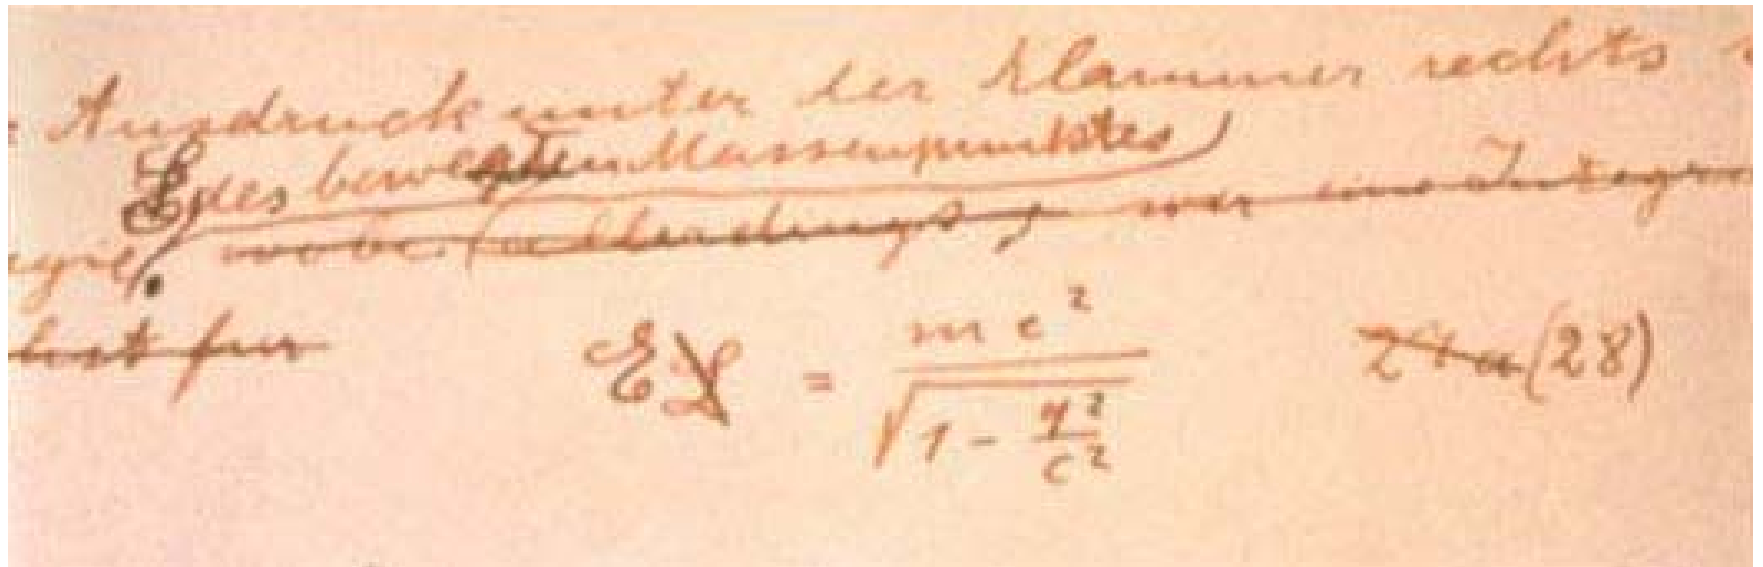 Ausdruck unter der Klammer rechts
E des bewegten Massenpunktes
wobei (allerdings) wir eine Integr
für
E L = mc² / √(1 - q²/c²) 24a (28)